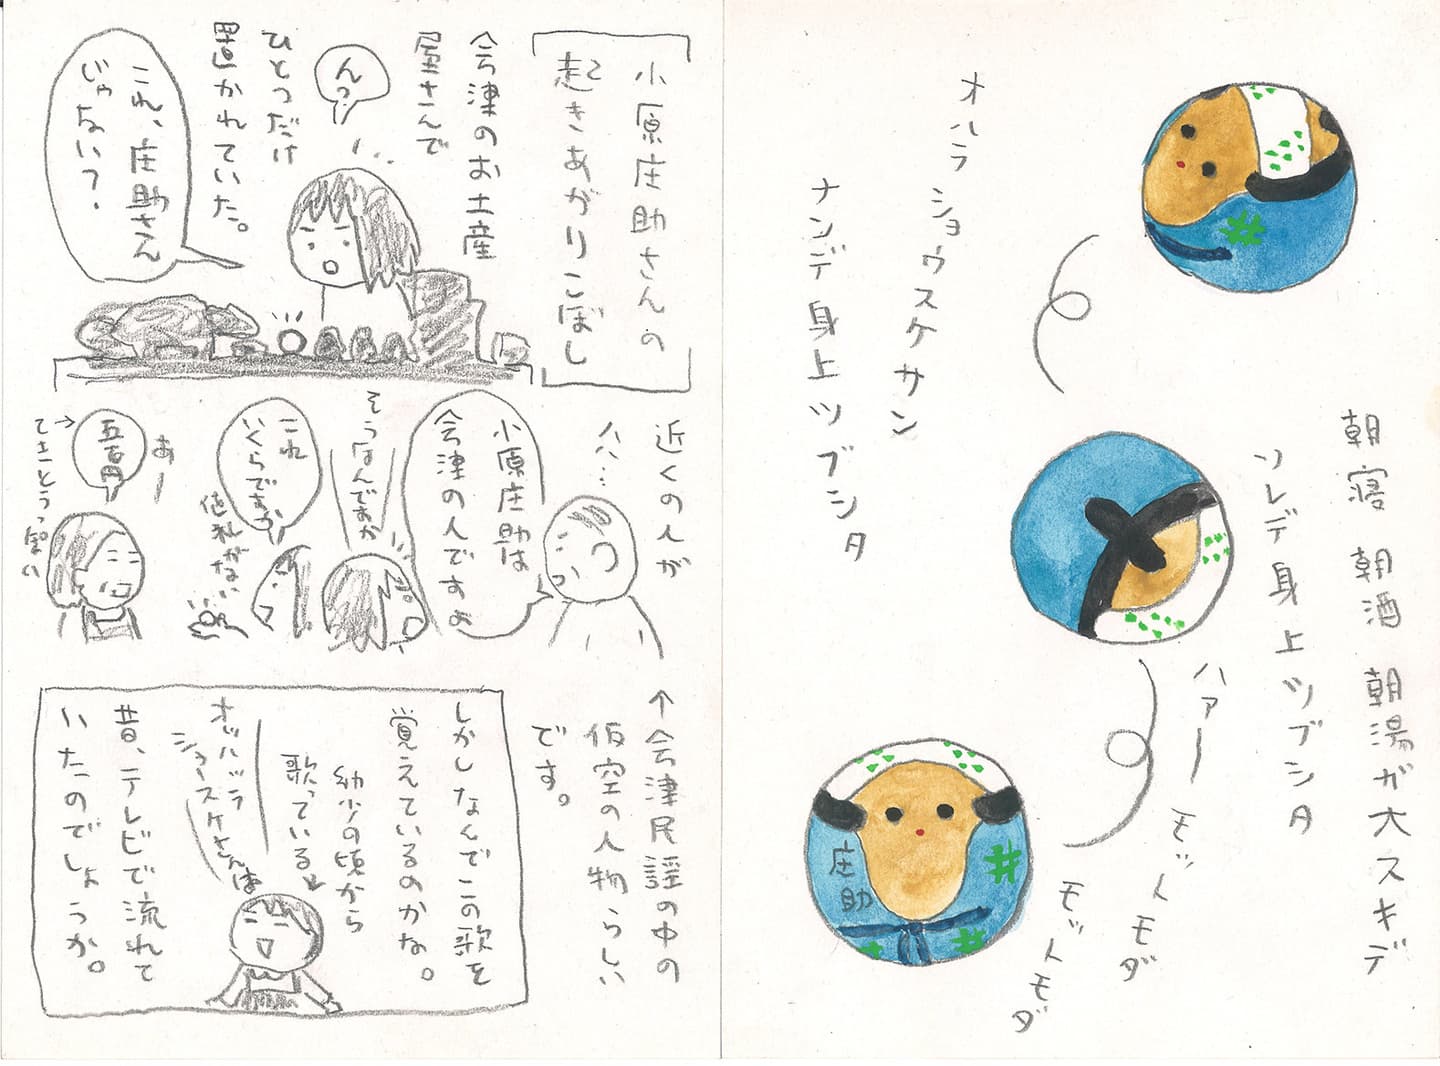 小原庄助さんの
起きあがりこぼし
会津のお土産
屋さんで
ひとつだけ
置かれていた。
んっ?
これ、庄助さん
じゃない?
近くの人が
八八…
小原庄助は
会津の人ですよ
そうなんですか
これ
いくらですか
値札がない
あー
五百円
→てきとうっぽい
↑会津民謡の中の
仮空の人物らしい
です。
しかしなんでこの歌を
覚えているのかな。
幼少の頃から
歌っている
オッハッラ
ショースケさんは
昔、テレビで流れて
いたのでしょうか。
オハラ
ショウスケサン
ナンデ身上ツブシタ
朝寝 朝酒 朝湯が大スキデ
ソレデ身上ツブシタ
ハァー
モットモダ
モットモダ
庄助